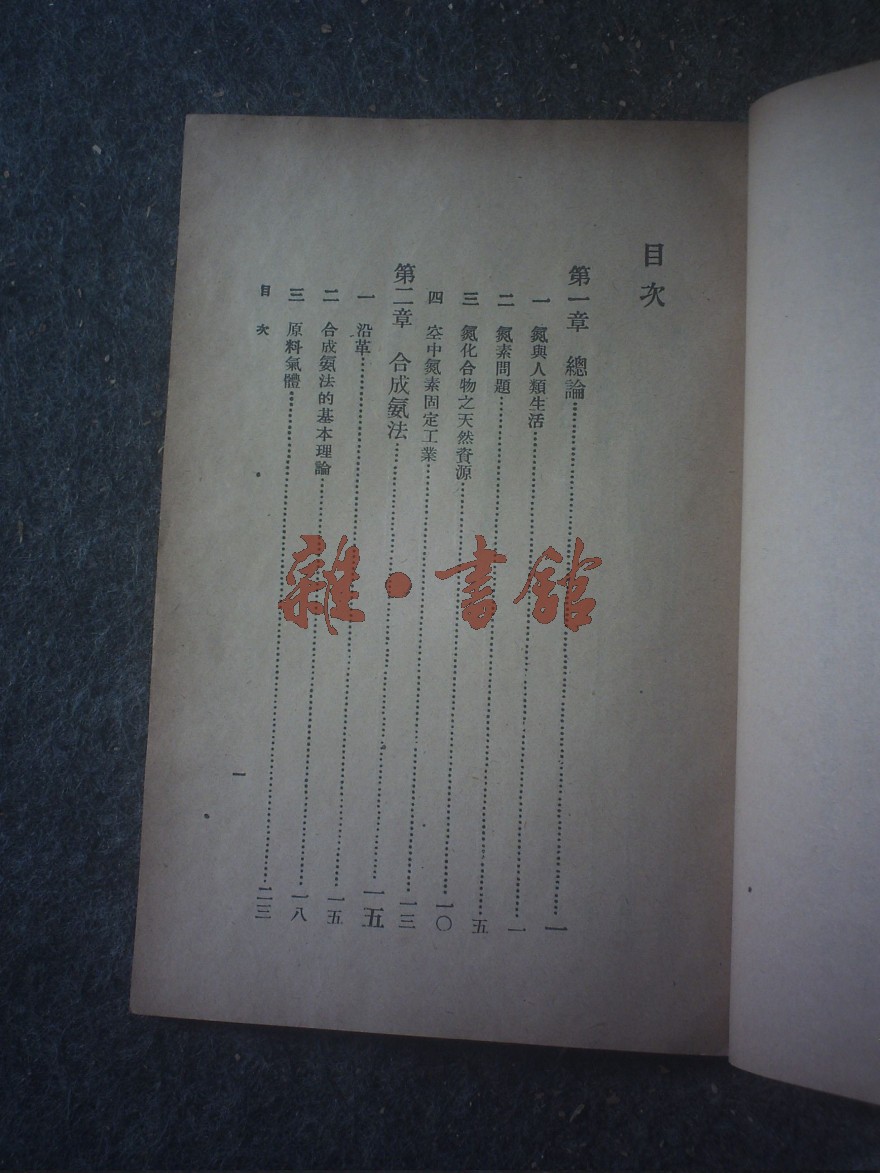 目次
第一章　總論……一
一　氮與人類生活……一
二　氮素問題……五
三　氮化合物之天然資源……一〇
四　空中氮素固定工業……一三
第二章　合成氨法……一五
一　沿革……一五
二　合成氨法的基本理論……一八
三　原料氣體……二三
目次
一
雜・書館